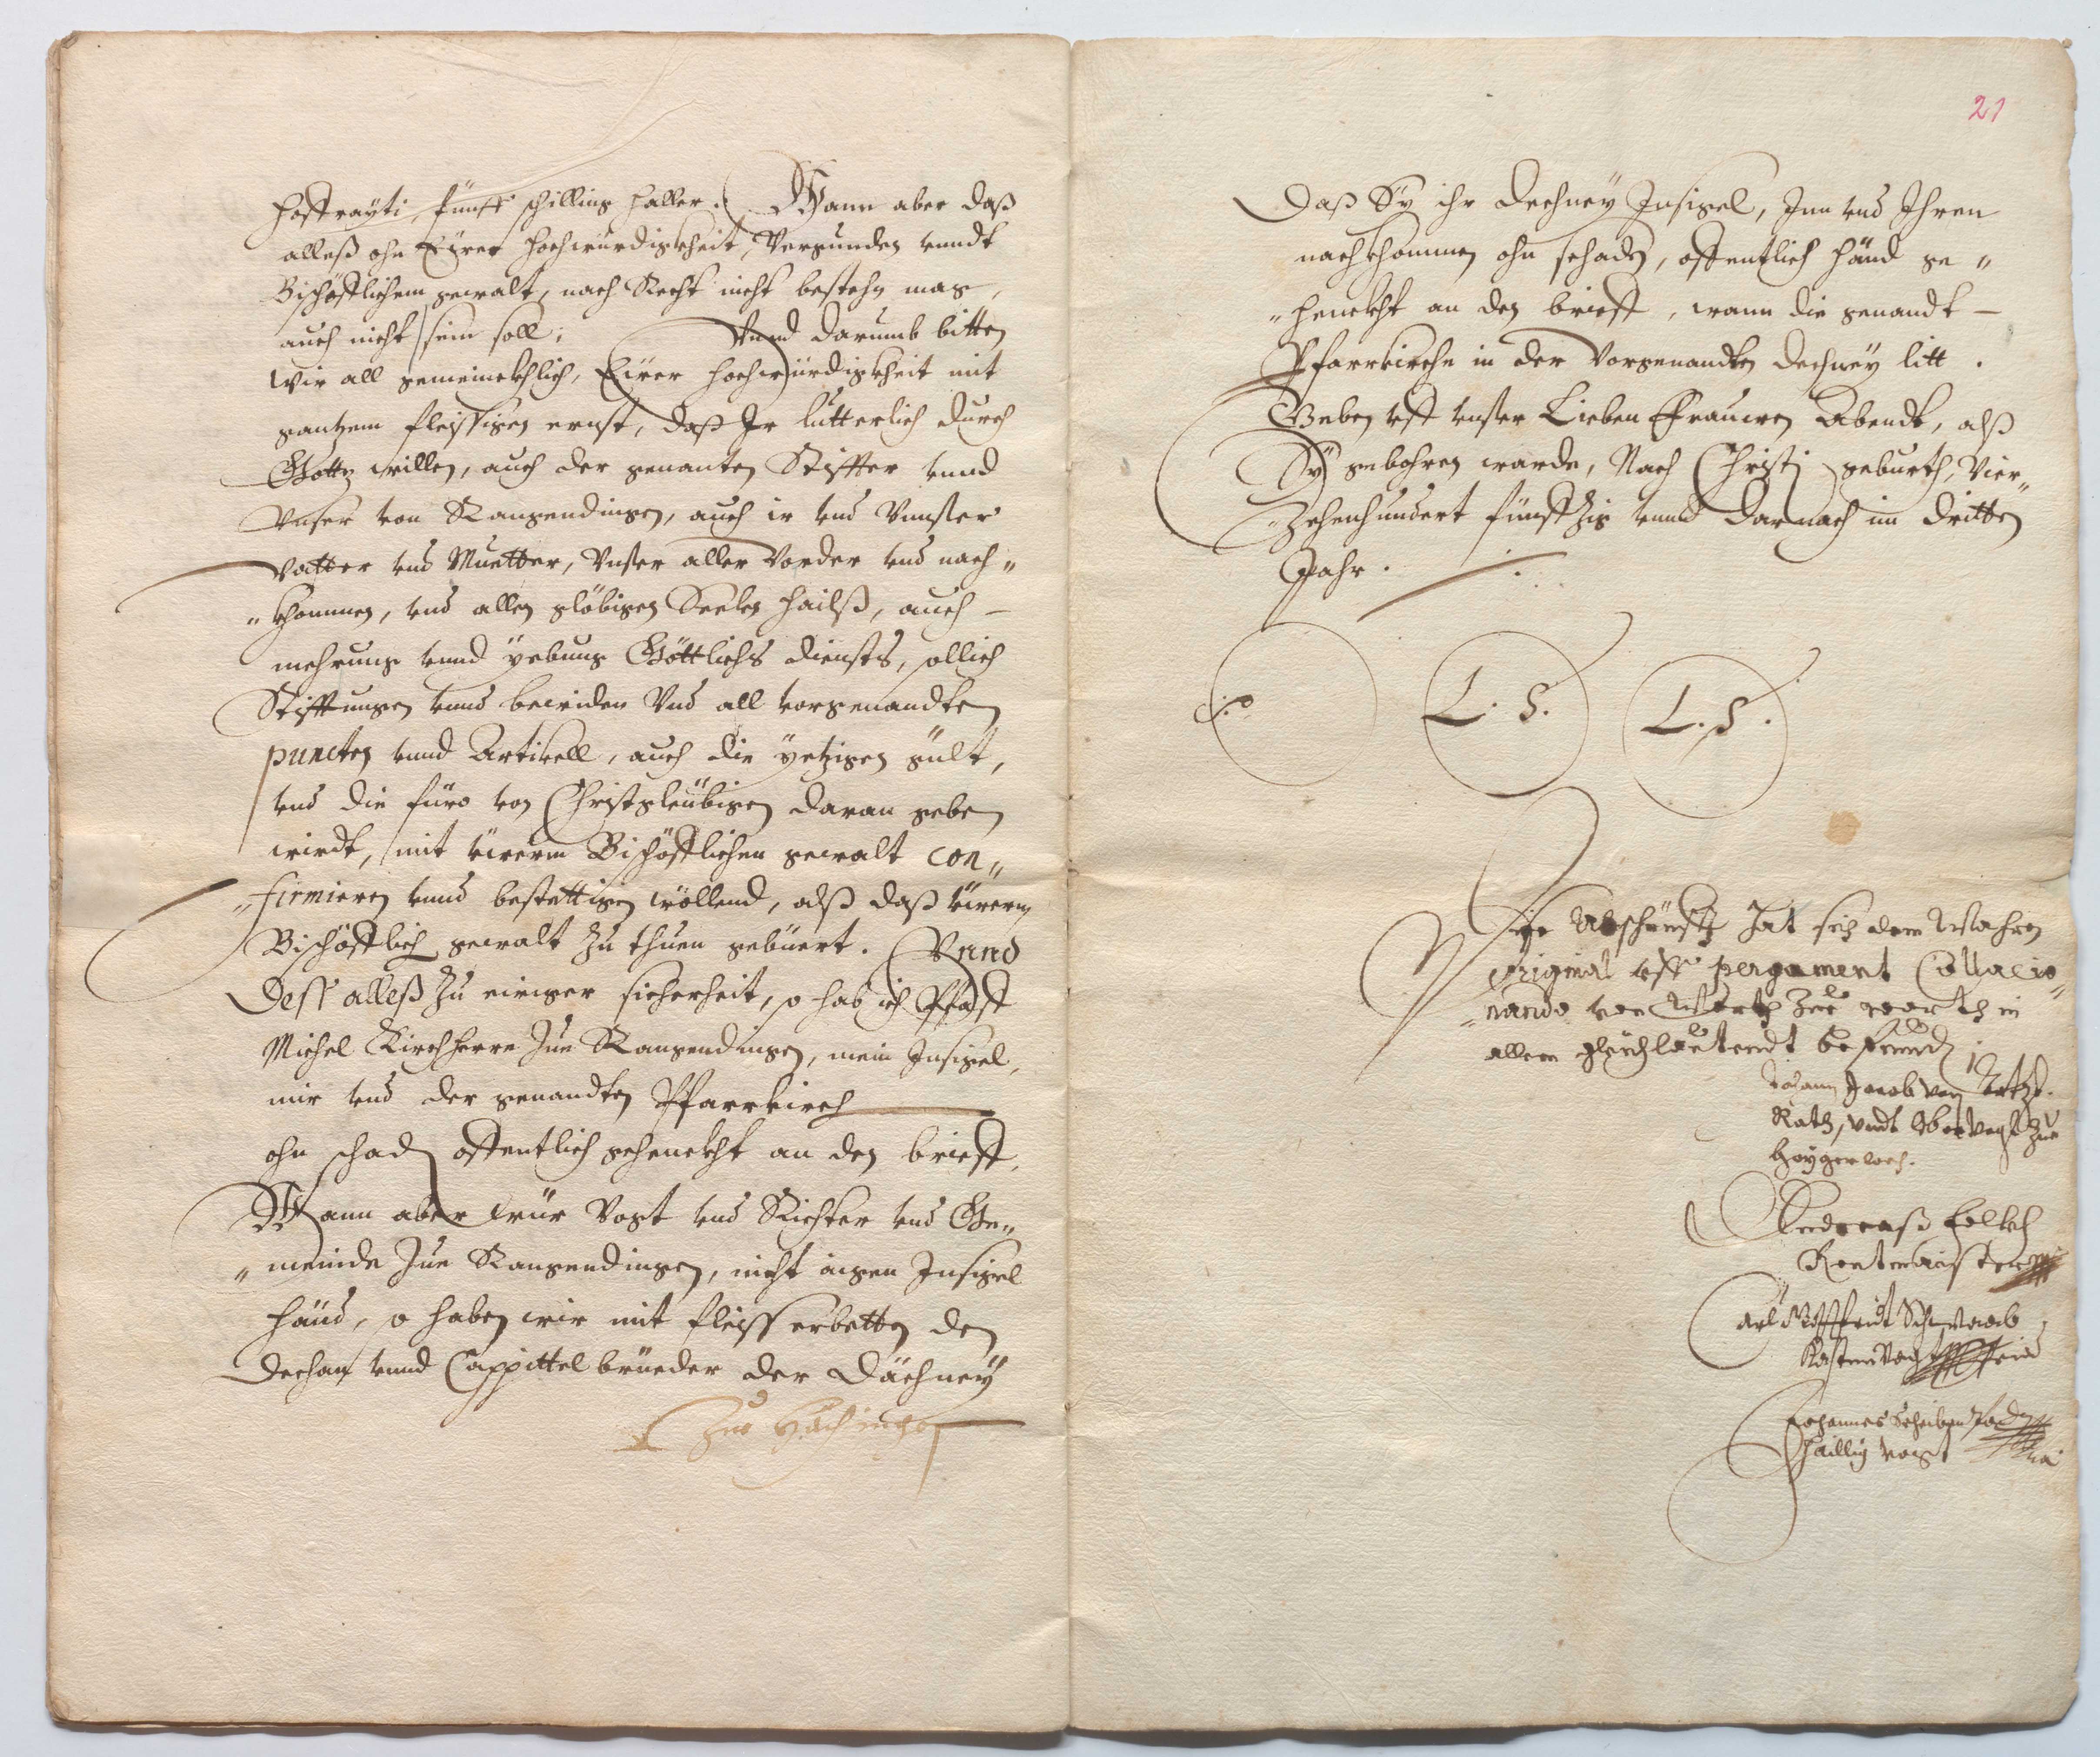 hoffrayti, fünff schilling haller. Wann aber daß
alleß ohn Eürer Hochwürdigkheit, Vergunden vnndt
Bischöfflichem gewalt, nach Recht nicht bestehn mag,
auch nicht sein soll; Vnnd darumb bitten
wir all gemeinekhlich, Eürer Hochwürdigkheit mit
gantzem fleissigen ernst, daß Ir lutterlich durch
Gottz willen, auch der genanten Stiffter vnnd
Vnser von Rangendingen, auch ir vnd Vnnser
Vatter vnd Muetter, Vnser aller Vorder vnd nach„
„khommen, vnd allen glöbigen Seelen hailß, auch –
mehrung vnnd yebung Göttlichs diensts, sollich
Stifftungen vnnd bewiden Vnd all vorgenandten
puncten vnnd Artikell, auch die yetzigen gült,
vnd die füro von Christgleübigen daran geben
wirdt, mit ewerm Bischöfflichen gewalt con„
„firmieren vnnd bestettigen wöllend, alß daß ewerm
Bischöfflich gewalt zu thuen gebüert. Vnnd
Dess alleß zu ewiger sicherheit, so hab ich Pfaff
Michel Kirchherre zue Rangendingen, mein Insigel,
mir vnd der genandten Pfarrkirch
ohn schaden offentlich gehenckht an den brieff.
Wann aber wür Vogt vnd Richter vnd Ge„
„meinde zue Rangendingen, nicht aigen Insigel
händ, so haben wir mit fleiss erbetten den
Dechan vnnd Cappittel brüeder der Dächney
zue Hächingen
21
Daß Sy ihr Dechney Insigel, Inn vnd Ihren
nachkhommen ohn schaden, offentlich händ ge„
„henckht an den brieff, wann die genandt –
Pfarrkirche in der vorgenandten Dechney litt.
Geben vff vnser Lieben Frauwen Abendt, alß
Sy gebohren warde, Nach Christi geburth, Vier„
„zehenhundert fünffzig vnnd darnach im dritten
Jahr.
L. S.
L. S.
Dise Abschrüfft hat sich dem Wahren
original vff pergament Collacio„
„nando von Wortt zue wortt in
allem gleichlautendt befunden
Johann Jacob von
Rath, vndt Obervogt zue
Haygerloch.
Andreaß
Rentmaister
Carl Schwaab
Kastenvogt
Johannes
Hailligvogt